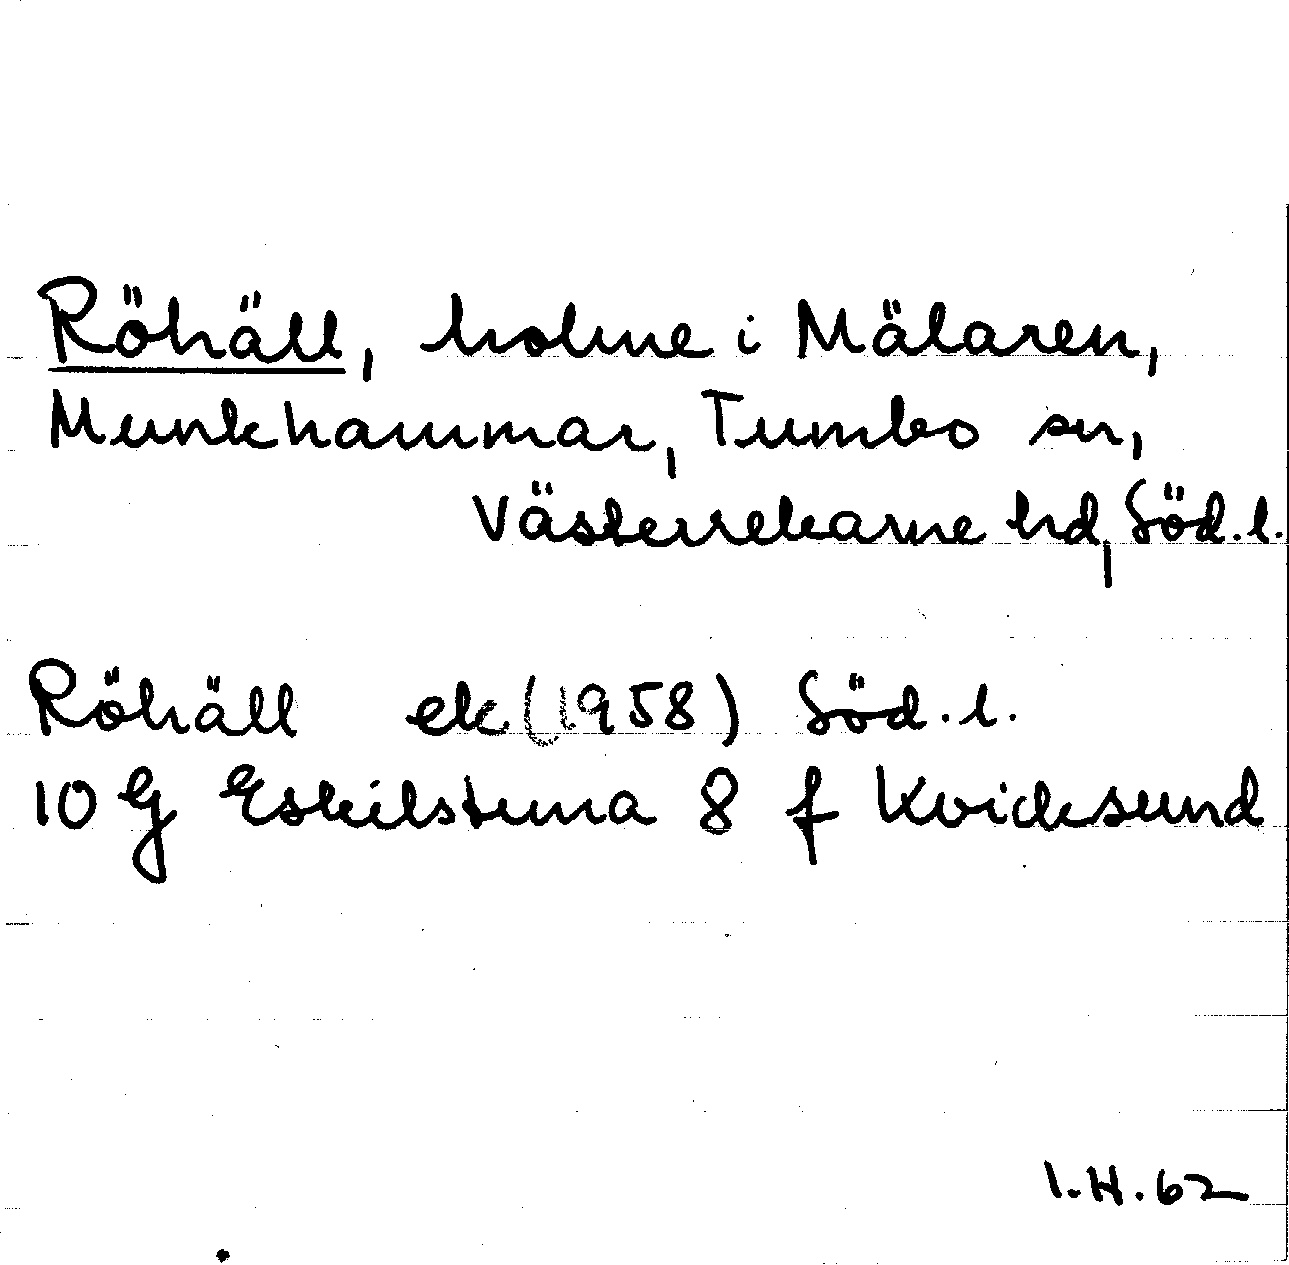 Röhäll, holme i Mälaren,
Munkhammar, Tumbo sn,
Västerrekarne hd, Söd.l.
Röhäll ek (1958) Söd.l.
10 G Eskilstuna 8 f Kvicksund
I.H.62